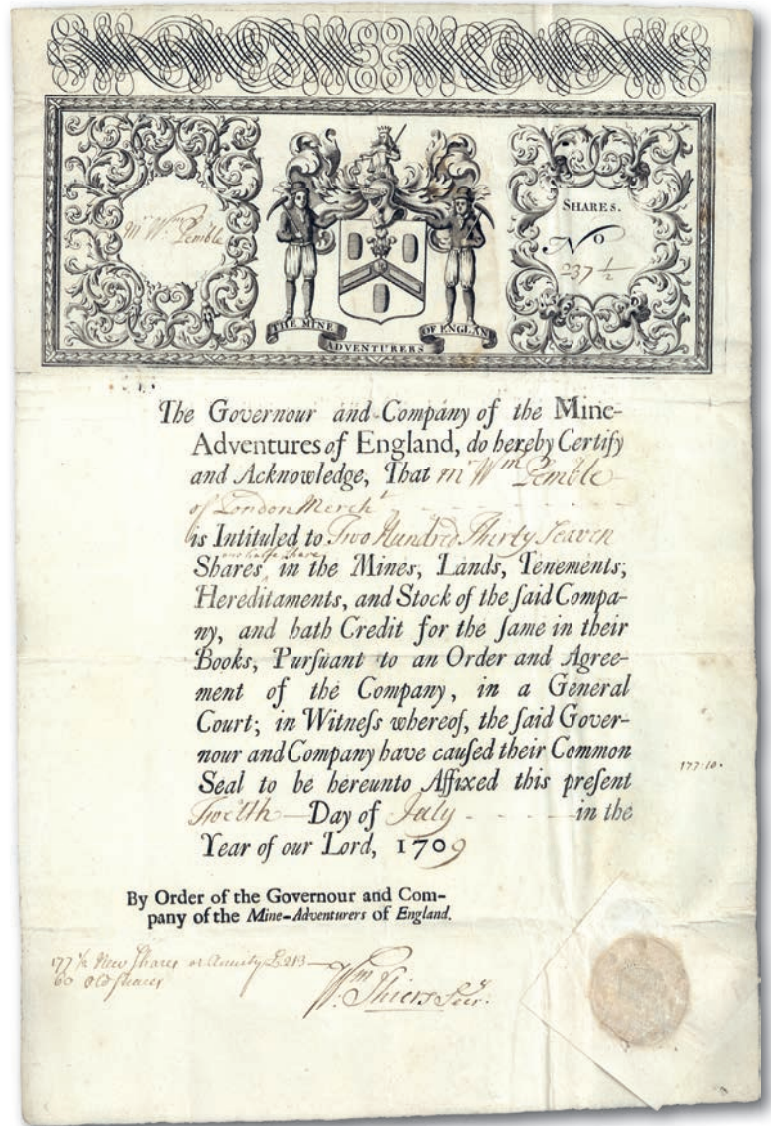 Mr Wm. Pemble
SHARES.
No
237 1/2
THE MINE
ADVENTURERS
OF ENGLAN
The Governour and Company of the Mine-
Adventures of England, do hereby Certify
and Acknowledge, That Mr Wm Pemble
of London Mercht
is Intituled to Two Hundred Thirty Seaven
one halfe share
Shares, in the Mines, Lands, Tenements,
Hereditaments, and Stock of the ſaid Compa-
ny, and hath Credit for the ſame in their
Books, Purſuant to an Order and Agree-
ment of the Company, in a General
Court; in Witneſs whereof, the ſaid Gover-
nour and Company have cauſed their Common
Seal to be hereunto Affixed this preſent
Twelth Day of July in the
Year of our Lord, 1709
177:10.
By Order of the Governour and Com-
pany of the Mine-Adventurers of England.
177 1/2 New Shares or Annuity £213
60 Old Shares
Wm: Shiers Secr: